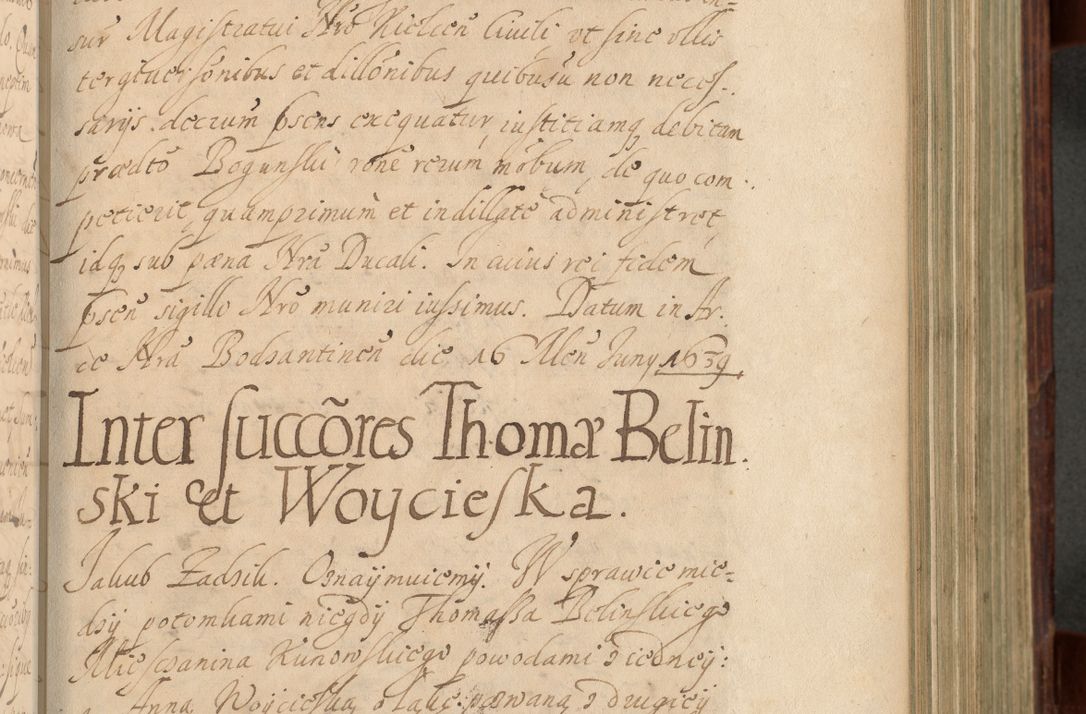 sur Magistratui Nrō Kielcen̄ Ciuili vt sine vllis
tergiuersōnibus et dillōnibus quibusū non neces-
sarijs. decrum p̄sens exequatur, iustitiamq debitam
prædtō Bogunski rōne rerum mōbum, de quo com-
petierit, quamprimum et indillatē administret,
idq sub pæna Nrā Ducali. In cuius rei fidem
p̄sen̄ sigillo Nrō muniri iussimus. Datum in Ar-
ce Nrā Bodzantinen̄ die 16 Men̄ Juny 1639
Inter succõres Thomæ Belin
ski et Woycieska.
Jakub Zadzik. Oznaÿmuiemÿ. W sprawie mie-
dzÿ potomkami niegdÿ Thomassa Belinskiege
Miesczanina Kunowskiego powodami z iedneÿ:
Anna Woÿcieska, pozwaną z drugieÿ